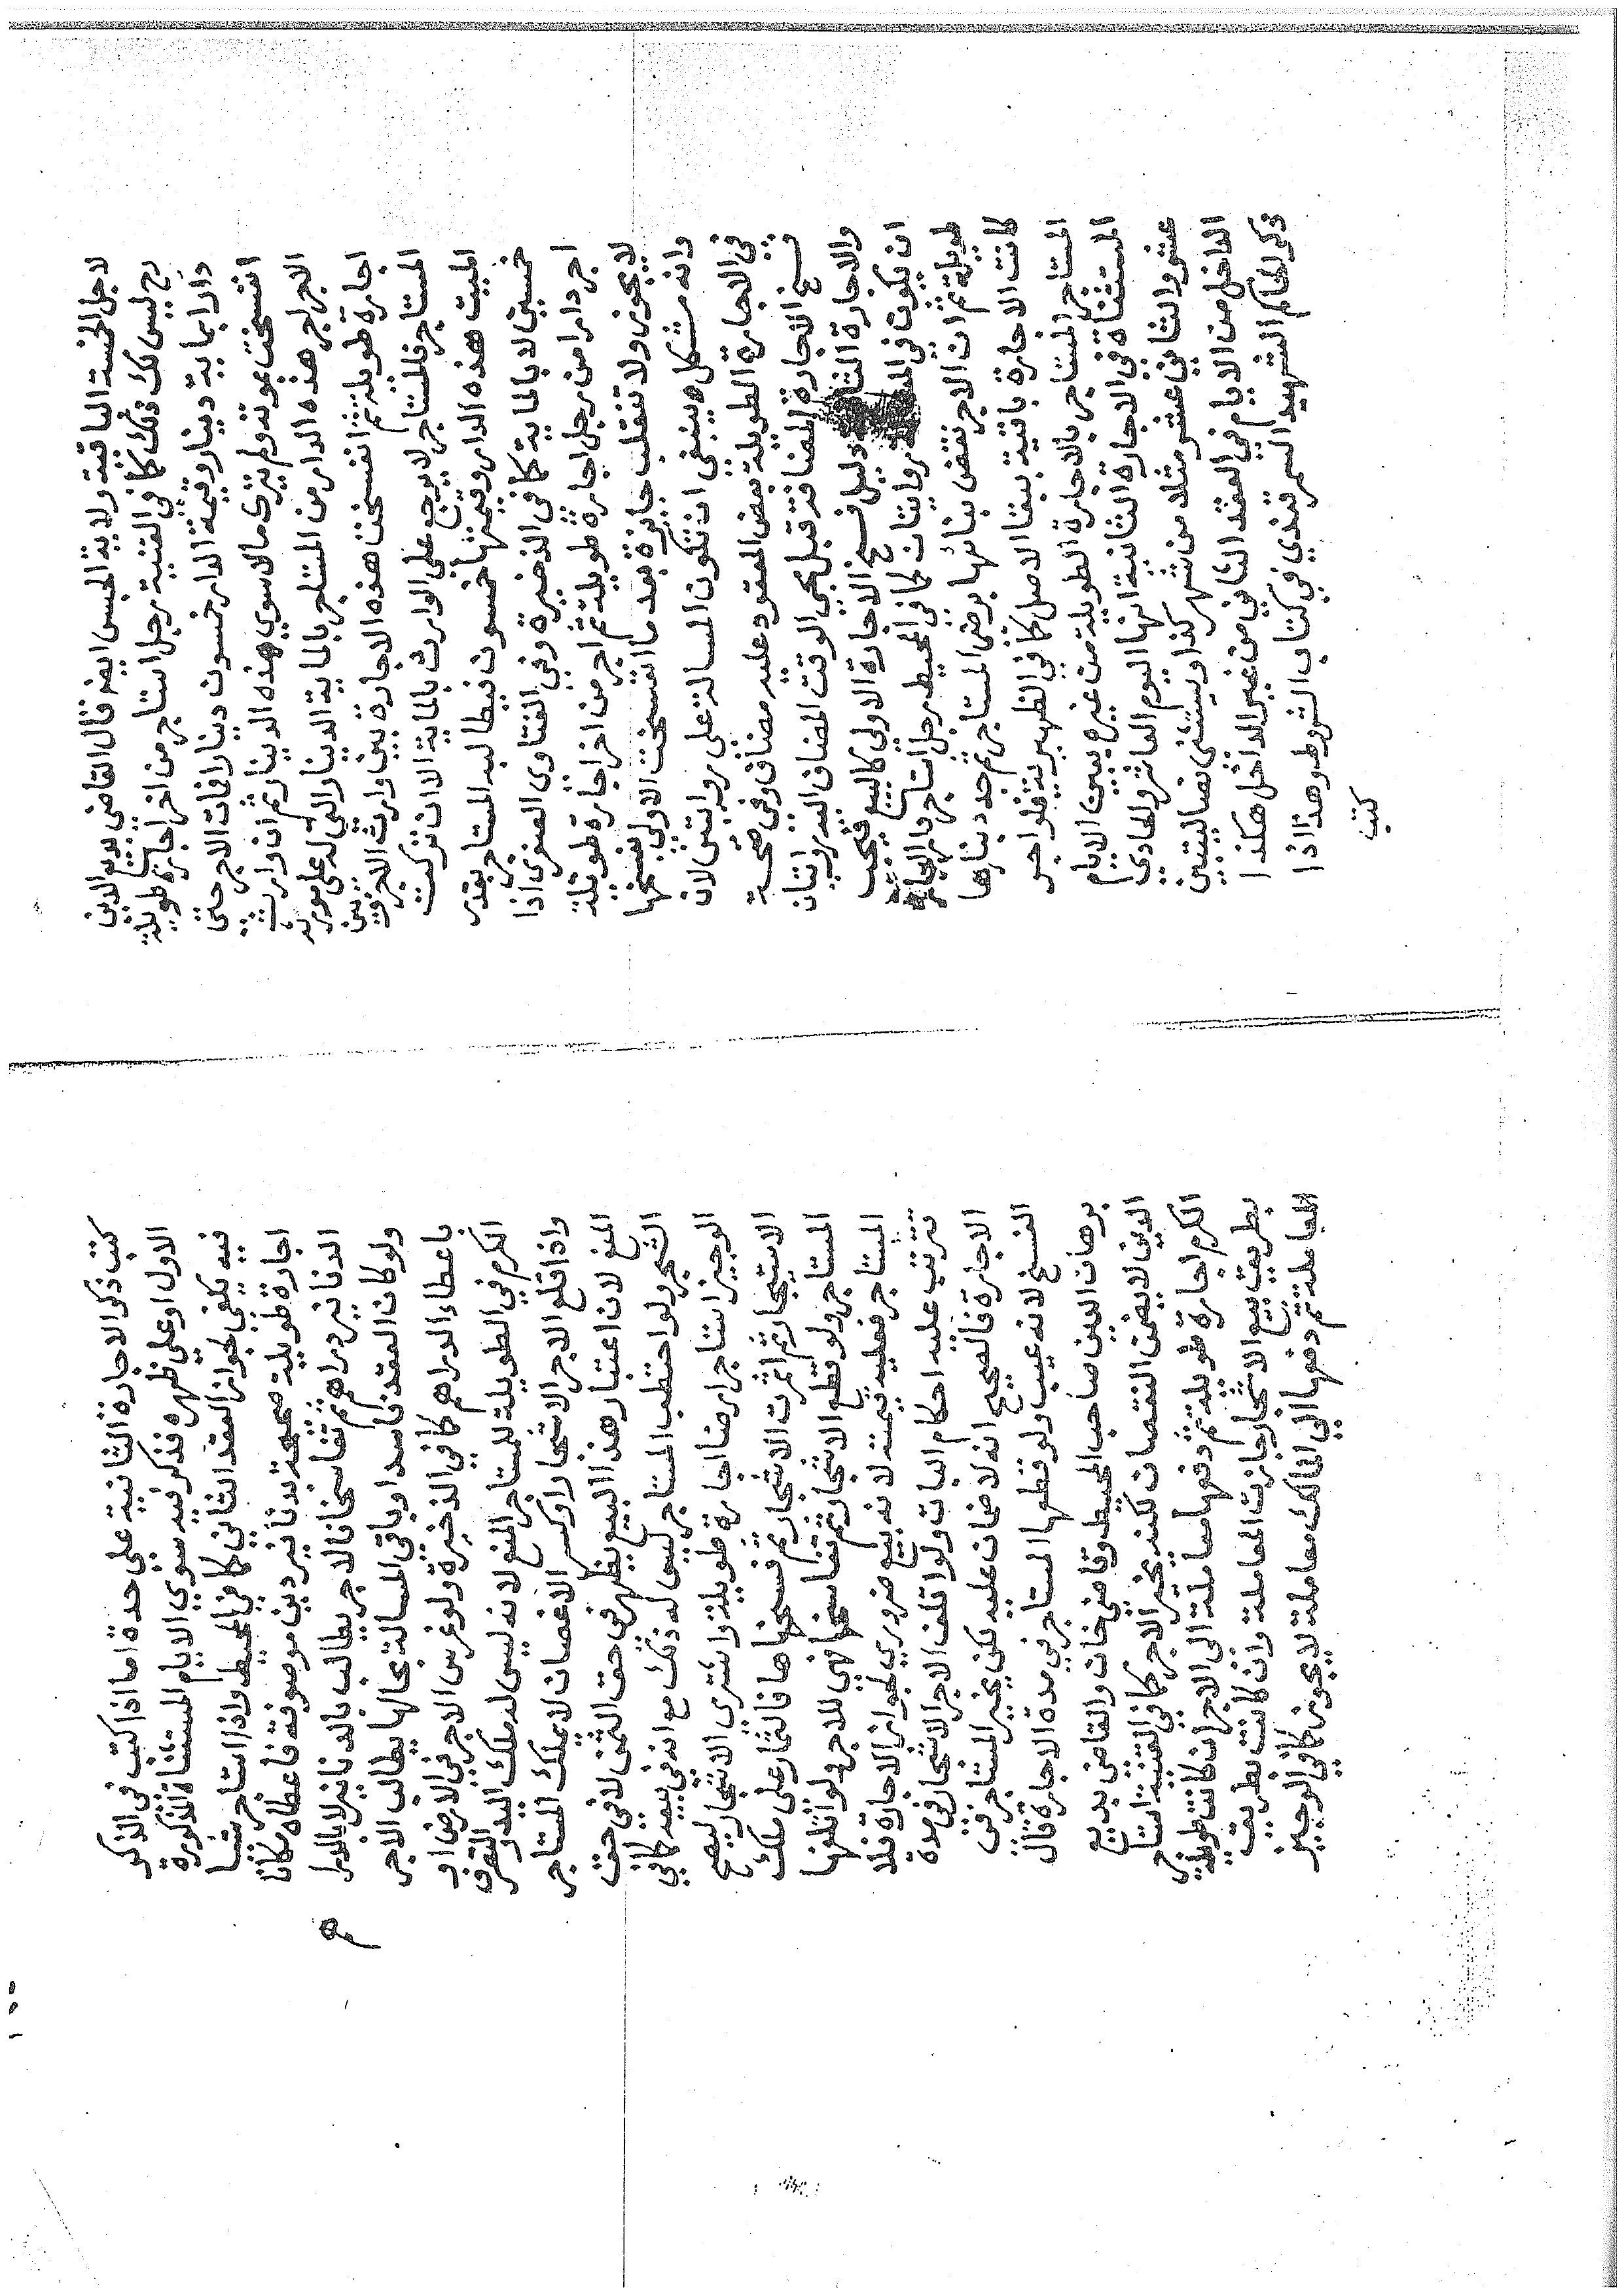 لاجل الخمسة الباقية ولاية الحبس ايضا قال القاضي بديع الدين
رح ليس لك ذلك كذا في القنية رجل استاجر من اخر اجارة طويلة
دارا بماية دينار وقيمة الدار خمسون دينارا فمات الاجر حتى
انفسخت بموته ولم يترك مالا سوي هذه الدينار ثم ان وارث
الاجر اجر هذه الدار من المستاجر بالماية الدينار التي له على مورثه
اجارة طويلة ثم انفسخت هذه الاجارة بين وارث الاجر وبين
المستاجر فللمستاجر لا يرجع على الوارث بالماية الا ان تركت
الميت هذه الدار وقيمتها خمسون فيطالبه المستاجر بقدر
خمسين لا بالماية كذا في الذخيرة وفي الفتاوى الصغرى اذا
اجر دارا من رجل اجارة طويلة ثم اجر من اخر اجارة طويلة
لا يجوز ولا تنقلب جايزة بعد ما انفسخت الاولي بفسخها
وانه مشكل وينبغي ان تكون المسالة على روايتين لان
في الاجارة الطويلة بعض المعقود عليه مضاف وفي صحة
فسخ الاجارة المضافة قبل مجي الوقت المضاف اليه روايتان
والاجارة دليل فسخ الاجارة الاولي كالبيع فيجب
ان يكون في روايتان كذا في المحيط رجل استاجر
طويلة ثم ان الاجر نقض بنائها برضى المستاجر ثم جدد بنارها
كانت الاجارة باقية ببقا الاصل كذا في الظهيرية فلو اجر
المستاجر المستاجر بالاجارة الطويلة من غيره يبين الايام
المستثناة في الاجارة الثانية انها اليوم العاشر والحادي
عشر والثاني عشر مثلا من شهر كذا ويستثني نصا ليتبين
الداخل من الايام في العقد الثاني من غير الداخل هكذا
ذكر الحاكم الشهيد السمرقندي في كتاب الشروط وهذا اذا
كتب
كتب ذكر الاجارة الثانية على حدة اما اذا كتب في الذكر
الاول او على ظهره فذكر فيه سوي الايام المستثناة المذكورة
فيه يكفي لجواز العقد الثاني كذا في المحيط واذا استاجر شيا
اجارة طويلة صحيحة بدنانير دين موصوفة فاعطاه مكان
الدنانير دراهم ثم تفاسخا فان الاجر يطالب بالدنانير لا بالدراهم
ولو كان العقد فاسدا وباقي المسالة بحالها يطالب الاجر
باعطاء الدراهم كذا في الذخيرة ولو غرس الاجر في الارض او
الكرم في الطويلة للمستاجر المنع لانه ليس له ملك اليد والتصرف
واذا قلع الاجر الاشجار او كسر الاغصان لا يملك المستاجر
المنع لان اعتبار هذا البيع يظهر في حق الثمن لا في حق
الشجر ولو احتطب المستاجر ليس له ذلك مع انه في بيعه كذا في
الوجيز استاجر ارضا اجارة طويلة واشتري الاشجار ليصح
الاستيجار ثم اثمرت الاشجار ثم فسخها فالثمار على ملك
المستاجر ولو قطع الاشجار ثم تفاسخا فهي للاجر ولو اتلفها
المستاجر فعليه قيمته لانه بيع ضروري لجواز الاجارة فلا
تترتب عليه احكام البات ولو اتلف الاجر الاشجار في مدة
الاجارة فالصحيح انه لا ضمان عليه لكن يخير المستاجر في
الفسخ لانه عيب ولو قطعها المستاجر في مدة الاجارة قال
برهان الدين صاحب المحيط وقاضي خان والقاضي بديع
الدين لا يضمن النقصان لكنه يخير الاجر كذا في القنية استاجر
الكرم اجارة طويلة ثم دفعها معاملة الى الاجر ان كانت طويلة
بطريق بيع الاشجار جازت المعاملة وان كانت بطريق
المعاملة ثم دفعها الي المالك معاملة لا يجوز كذا في الوجيز